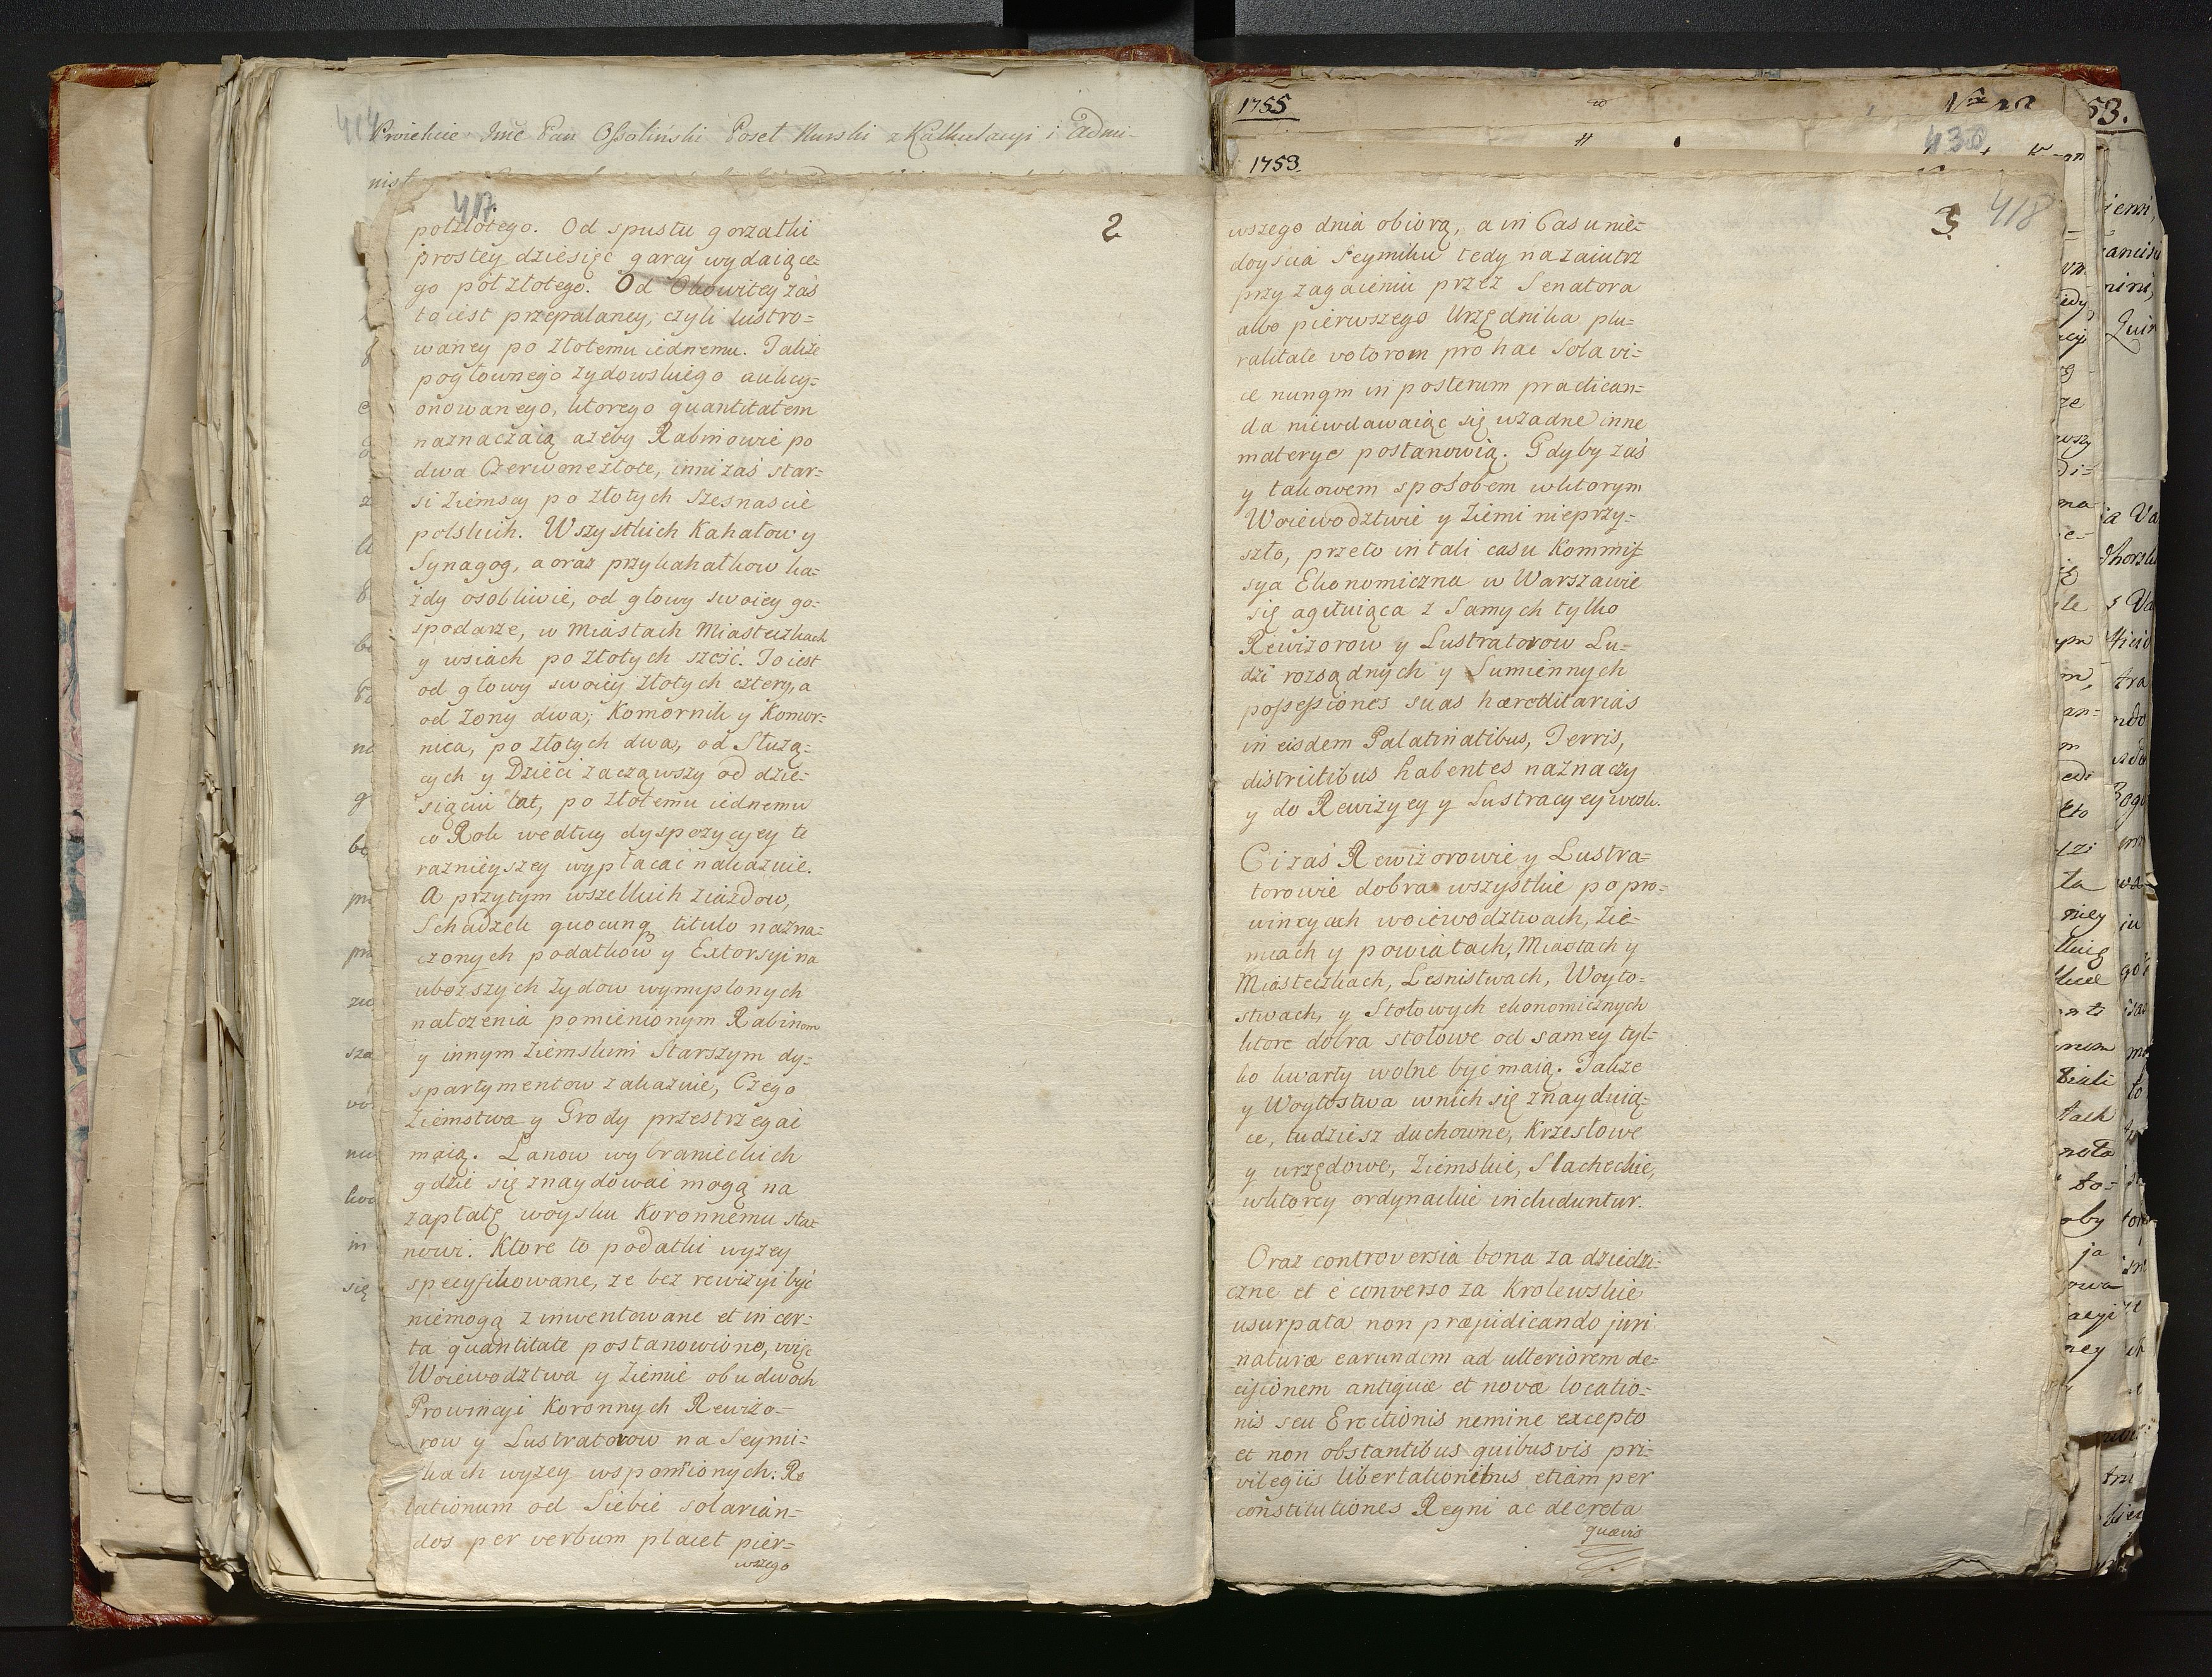 Proiekcie Jmc Pan Ossoliński Poseł Nurski z Kalkulacyi i Admi-
417.
2
połzłotego. Od spustu gorzałki
prostey dziesięć garcy wydaiące=
go poł złotego. Od Okowitey zaś
to iest przepalaney, czyli lustro=
waney po złotemu iednemu. Takze
pogłownego zydowskiego aukcy=
onowanego, ktorego quantitatem
naznaczaią azeby Rabinowie po
dwa Czerwone złote, inni zaś star=
si Ziemscy po złotych szesnascie
polskich. Wszystkich Kahałow y
Synagog, a oraz przykahałkow ka=
zdy osobliwie, od głowy swoiey go=
spodarze, w Miastach Miasteczkach
y wsiach po złotych sześć. To iest
od głowy swoiey złotych cztery, a
od zony dwa, Komornik y Komor=
nica, po złotych dwa, od Służą=
cych y Dzieci zacząwszy od dzie=
siąciu lat, po złotemu iednemu
co Rok według dyspozycyey te
raznieyszey wypłacać nakazuie.
A przytym wszelkich ziazdow,
Schadzek quocunq titulo nazna=
czonych podatkow y Extorsyi na
ubozszych zydow wymyslonych
nałozenia pomienionym Rabinom
y innym Ziemskim Starszym dy=
spartymentow zakazuie, Czego
Ziemstwa y Grody przestrzegać
maią. Łanow wybranieckich
gdzie się znaydować mogą na
zapłatę woysku Koronnemu sta=
nowi. Ktore to podatki wyzey
specyfikowane, ze bez rewizyi być
niemogą zinwentowane et in cer=
ta quantitate postanowione, więc
Woiewodztwa y Ziemie obudwoch
Prowincyi Koronnych Rewizo=
row y Lustratorow na Seymi=
kach wyzey wspomionych. Re
lationum od Siebie solarian=
dos per verbum placet pier=
wszego
1755
438
1753.
3.
418
wszego dnia obiorą, a in Casu nie=
doyścia Seymiku tedy nazaiutrz
przy zagaieniu przez Senatora
albo pierwszego Urzędnika plu=
ralitate votorom pro hac sola vi=
ce nunqm in posterum practican=
da niewdawaiąc się wzadne inne
materye postanowią. Gdyby zaś
y takowem sposobem wktorym
Woiewodztwie y Ziemi nieprzy=
szło, przeto in tali casu Kommis
sya Ekonomiczna w Warszawie
się agituiąca z Samych tylko
Rewizorow y Lustratorow Lu=
dzi rozsądnych y Sumiennych
possessiones suas hæreditarias
in eisdem Palatinatibus, Terris,
districtibus habentes naznaczy
y do Rewizyey y Lustracyey wezw.
Ci zaś Rewizorowie y Lustra=
torowie dobra wszystkie po pro=
wincyach woiewodztwach, Zie=
miach y powiatach, Miastach y
Miasteczkach, Lesnistwach, Woyto=
stwach, y Stołowych ekonomicznych
ktore dobra stołowe od samey tyl=
ko kwarty wolne być maią. Takze
y Woytostwa wnich się znayduią=
ce, tudziesz duchowne, Krzesłowe
y urzędowe, Ziemskie, Slacheckie,
wktorey ordynackie includuntur.
Oraz controversia bona za dziedzi=
czne et è converso za Krolewskie
usurpata non præjudicando juri
naturæ earundem ad ulteriorem de=
cisionem antiquæ et novæ locatio=
nis seu Erectionis nemine excepto
et non obstantibus quibusvis pri=
vilegiis libertationibus etiam per
constitutiones Regni ac decreta
quævis
53.